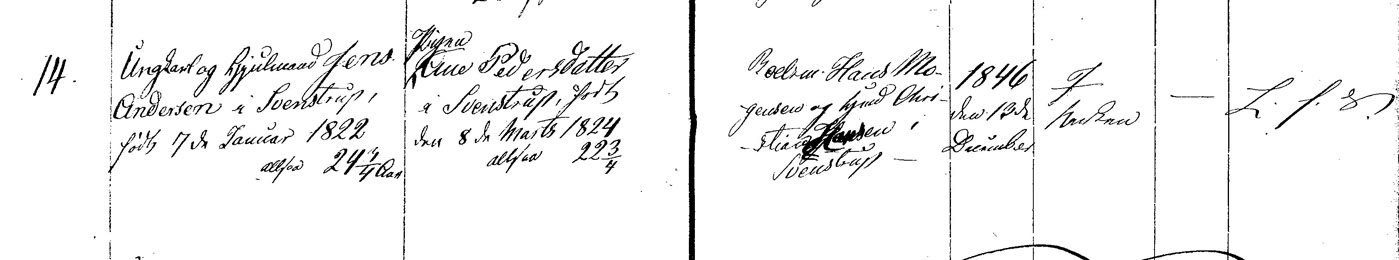 14.
Ungkarl og Hjulmand Jens
Andersen i Svenstrup,
født 7de Januar 1822
altsaa 24 3/4 Aar
Pigen
Ane Pedersdatter
i Svenstrup, født
den 8de Marts 1824
altsaa 22 3/4
Boelsm. Hans Mo-
gensen og Hmd Chri-
-stian Hansen i
Svenstrup —
1846
den 13de
December
I
Kirken
—